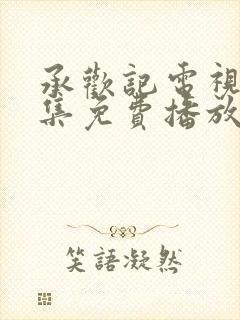 承歡記電視
集免費播放
笑語凝然